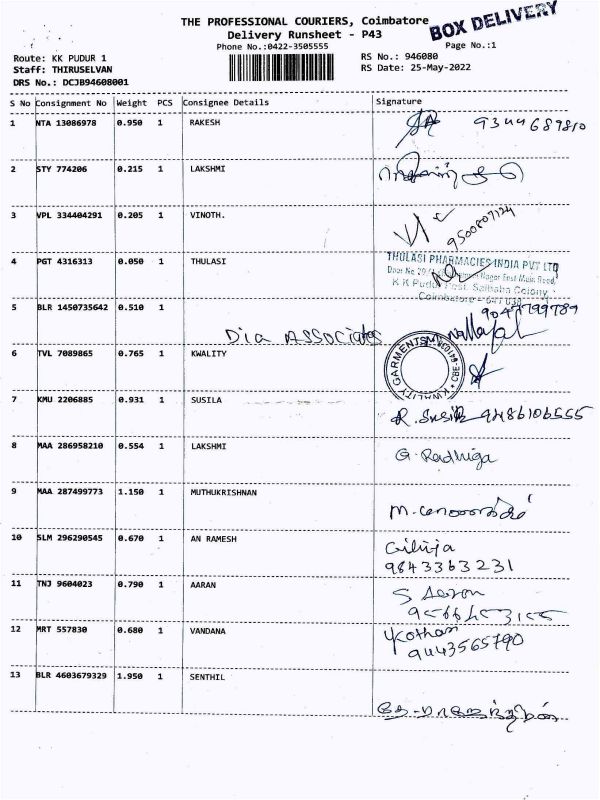 THE PROFESSIONAL COURIERS, Coimbatore
BOX DELIVERY
Delivery Runsheet - P43
Phone No.:0422-3505555
Page No.:1
Route: KK PUDUR 1
RS No.: 946080
Staff: THIRUSELVAN
RS Date: 25-May-2022
DRS No.: DCJB94608001
S No Consignment No Weight PCS Consignee Details Signature
1 NTA 13086978 0.950 1 RAKESH 9344689810
2 STY 774206 0.215 1 LAKSHMI
3 VPL 334404291 0.205 1 VINOTH. 9500807124
4 PGT 4316313 0.050 1 THULASI
THULASI PHARMACIES INDIA PVT LTD
Nagar East Main Road,
K K Pudur Post, Saibaba Colony
Coimbatore - 641 038
5 BLR 1450735642 0.510 1
Dia ASSOCIATES
6 TVL 7089865 0.765 1 KWALITY
KWALITY GARMENTS CBE
7 KMU 2206885 0.931 1 SUSILA R. Susila 9486106555
8 MAA 286958210 0.554 1 LAKSHMI G. Radhiga
9 MAA 287499773 1.150 1 MUTHUKRISHNAN
10 SLM 296290545 0.670 1 AN RAMESH
9843363231
11 TNJ 9604023 0.790 1 AARAN
12 MRT 557830 0.680 1 VANDANA
9443565790
13 BLR 4603679329 1.950 1 SENTHIL